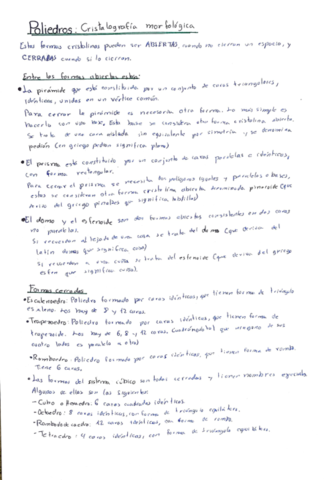 Poliedros: Cristalografía morfológica
Estas formas cristalinas pueden ser ABIERTAS, cuando no cierran un espacio, y
CERRADAS cuando si lo cierran.
Entre las formas abiertas estan:
• La pirámide que está constituida por un conjunto de caras triangulares,
idénticas, unidas en un vértice común.
Para cerrar la pirámide es necesaria otra forma. Lo mas simple es
hacerlo con una base. Esta base se considera otra forma cristalina abierta.
Se trata de una cara aislada sin equivalente por simetría y se denomina
pedión (en griego pedion significa plano)
• El prisma está constituido por un conjunto de caras paralelas e idénticas,
con forma rectangular.
Para cerrar el prisma se necesita dos polígonos iguales y paralelos o bases,
estas se consideran otra forma cristalina abierta denominada pinacoide (que
deriva del griego significa tablilla)
• El domo y el esfenoide son dos formas abiertas consistentes en dos caras
no paralelas.
Si recuerdan al tejado de una casa se trata del domo (que deriva del
latín domus que significa casa)
Si recuerdan a una cuña se trata del esfenoide (que deriva del griego
que significa cuña).
Formas cerradas
• Escalenoedro: Poliedro formado por caras idénticas, que tienen forma de triángulo
escaleno. Los hay de 8 y 12 caras
• Trapezoedro: Poliedro formado por caras idénticas, que tienen forma de
trapezoide. Los hay de 6, 8 y 12 caras. (cuadrilátero) que ninguno de sus
cuatro lados es paralelo a otro)
• Romboedro: Poliedro formado por caras idénticas, que tienen forma de rombo.
Tiene 6 caras.
• Las formas del sistema cúbico son todas cerradas y tienen nombres especiales.
Algunas de ellas son las siguientes:
- Cubo o hexaedro: 6 caras cuadradas idénticas.
- Octaedro: 8 caras idénticas, con forma de triángulo equilátero.
- Rombododecaedro: 12 caras idénticas, con forma de rombo.
- Tetraedro: 4 caras idénticas, con forma de triángulo equilátero.